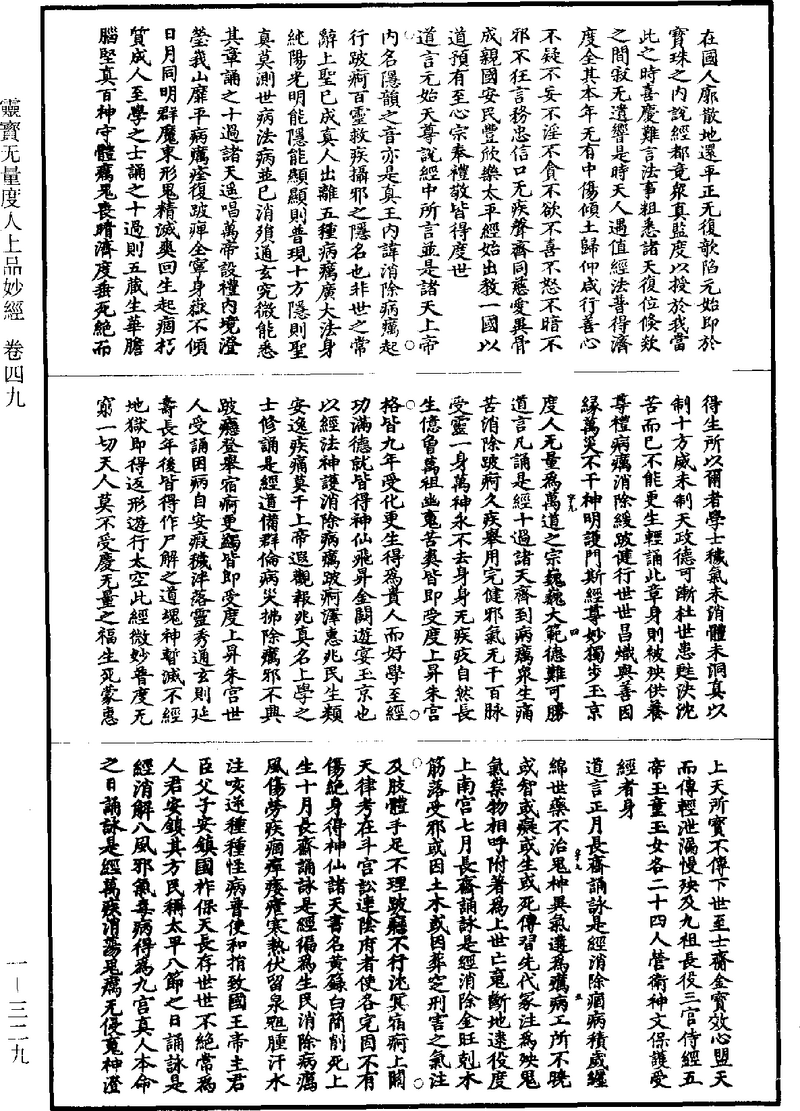 在國人廓散地還平正无復欹陷元始即於
寶珠之內說經都竟衆真監度以授於我當
此之時喜慶難言法事粗悉諸天復位倏歘
之間寂无遺響是時天人遇值經法普得濟
度全其本年无有中傷傾土歸仰咸行善心
不疑不妄不淫不貪不欲不喜不怒不暗不
邪不狂言務忠信口无疾聲齋同慈愛異骨
成親國安民豐欣樂太平經始出教一國以
道預有至心宗奉禮敬皆得度世
道言元始天尊說經中所言並是諸天上帝
內名隱韻之音亦是真王內諱消除病癘起
行跛痾百靈救疾攝邪之隱名也非世之常
辭上聖已成真人出離五種病癘廣大法身
純陽光明能隱能顯顯則普現十方隱則聖
真莫測世病法病並已消殞通玄究微能悉
其章誦之十過諸天遥唱萬帝設禮內境澄
瑩我山靡平病癘痊復跛癉全寧身嶽不傾
日月同明群魔束形鬼精滅爽回生起痼朽
質成人至學之士誦之十過則五藏生華膽
腦堅真百神守體癘鬼喪睛濟度垂死絕而
得生所以爾者學士穢氣未消體未洞真以
制十方威未制天政德可漸杜世患甦決沈
苦而已不能更生輕誦此章身則被殃供養
尊禮病癘消除緩跛健行世世昌熾與善因
緣萬災不干神明護門斯經尊妙獨步玉京
度人无量爲萬道之宗巍巍大範德難可勝
道言凡誦是經十過諸天齊到病癘衆生痛
苦消除跛痾久疾舉用完健邪氣无干百脉
受靈一身萬神永不去身身无疾疫自然長
生億曾萬祖幽鬼苦爽皆即受度上昇朱宫
格皆九年受化更生得爲貴人而好學至經
功滿德就皆得神仙飛昇金闕遊宴玉京也
以經法神護消除病癘跛痾澤惠兆民生類
安逸疾痛莫干上帝遐觀報兆真名上學之
士修誦是經道備群倫病災拂除癘邪不興
跛癮登舉宿痾更蠲皆即受度上昇朱宫世
人受誦因病自安瘕穢泮落靈秀通玄則延
壽長年後皆得作尸解之道魂神暫滅不經
地獄即得返形遊行太空此經微妙普度无
窮一切天人莫不受慶无量之福生死蒙惠
上天所寶不傳下世至士齋金寶效心盟天
而傳輕泄漏慢殃及九祖長役三官侍經五
帝玉童玉女各二十四人營衛神文保護受
經者身
道言正月長齋誦詠是經消除痼病積歲纏
綿世藥不治鬼神異氣遘爲癘病工所不曉
或智或癡或生或死傳習先代冢注爲殃鬼
氣藥物相呼附著爲上世亡竟斷地逮役度
上南宫七月長齋誦詠是經消除金旺剋木
筋落受邪或因土木或因葬定刑害之氣注
及肢體手足不理跛躄不行沈冥宿痾上關
天律考在斗宫訟連陰府者使各完固不有
傷絕身得神仙諸天書名黄籙白簡削死上
生十月長齋誦詠是經徧爲生民消除病癘
風傷勞疾痼瘴痿瘧寒熱伏留泉虺腫汗水
注咳逆種種怪病普使和損致國王帝主君
臣父子安鎮國祚保天長存世世不絕常爲
人君安鎮其方民稱太平八節之日誦詠是
經消解八風邪氣毒病得爲九宫真人本命
之日誦詠是經萬疾消蕩鬼癘无侵鬼神澄
靈寶无量度人上品妙經 卷四九
一—三二九